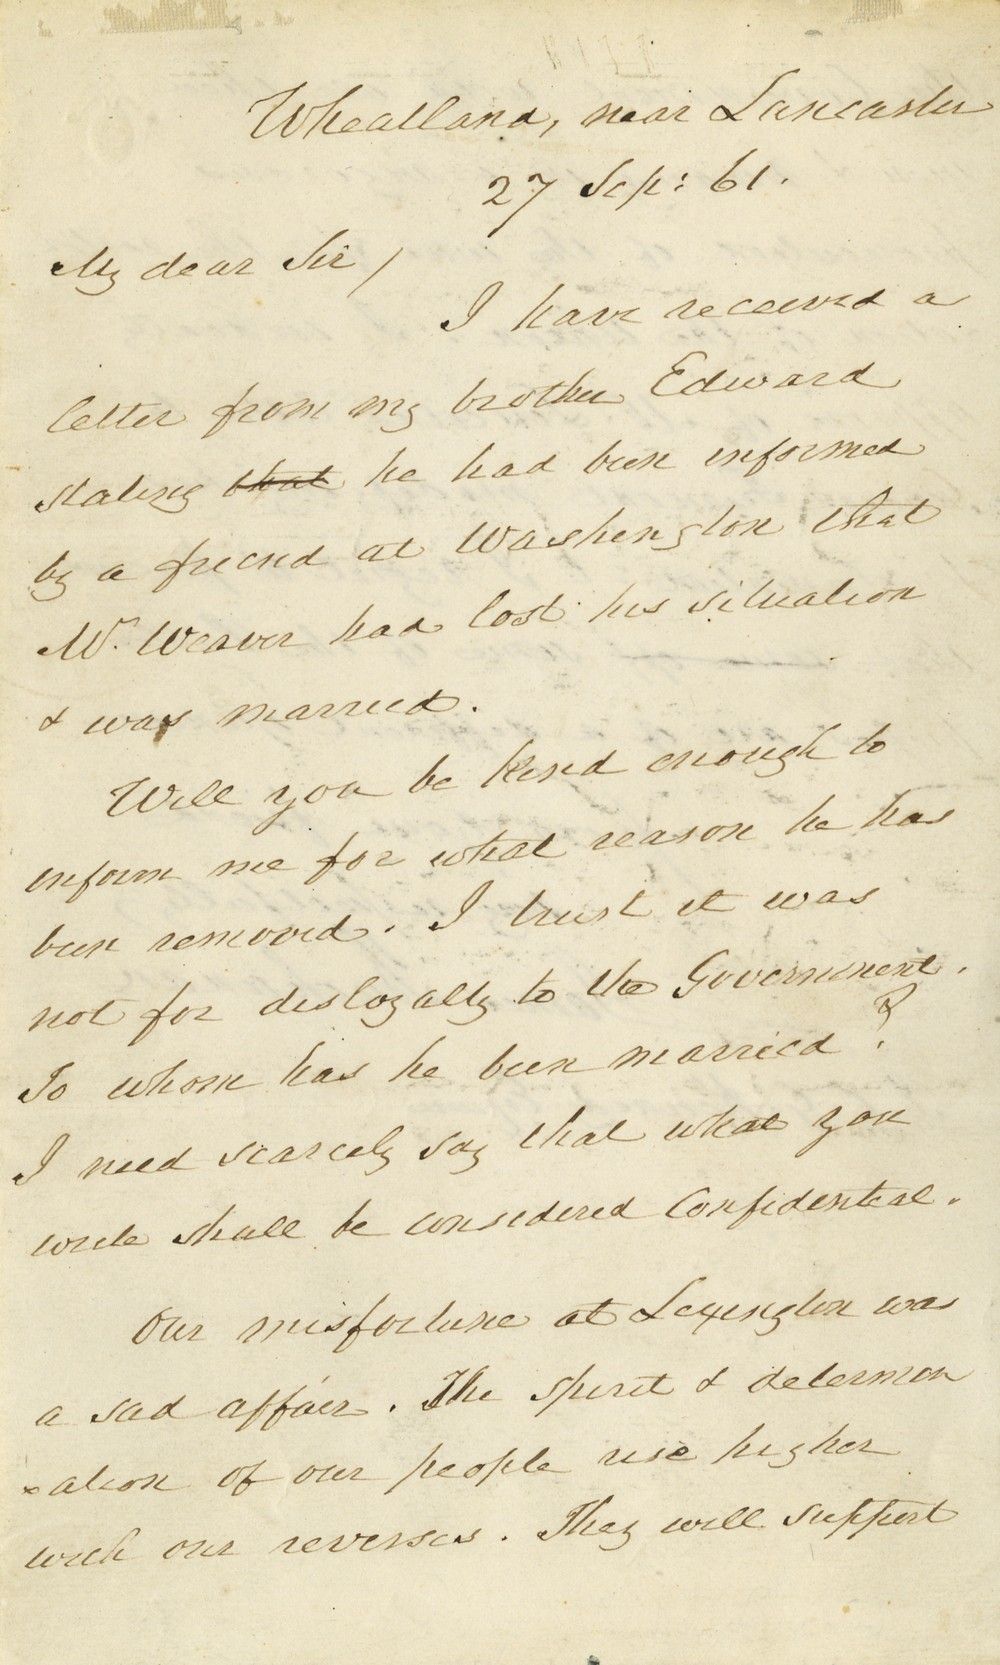 Wheatland, near Lancaster
27 Sep: 61.
My dear Sir /
I have received a
letter from my brother Edward
stating that he had been informed
by a friend at Washington that
Mr. Weaver had lost his situation
& was married.
Will you be kind enough to
inform me for what reason he has
been removed. I trust it was
not for disloyalty to the Government.
To whom has he been married?
I need scarcely say that what you
write shall be considered confidential.
Our misfortune at Lexington was
a sad affair. The spirit & determin
=ation of our people rise higher
with our reverses. They will support